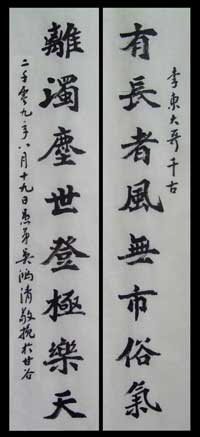 李東大哥千古
有長者風無市俗氣
離濁塵世登極樂天
二千零九年八月十九日愚弟吳鴻清敬挽於甘谷